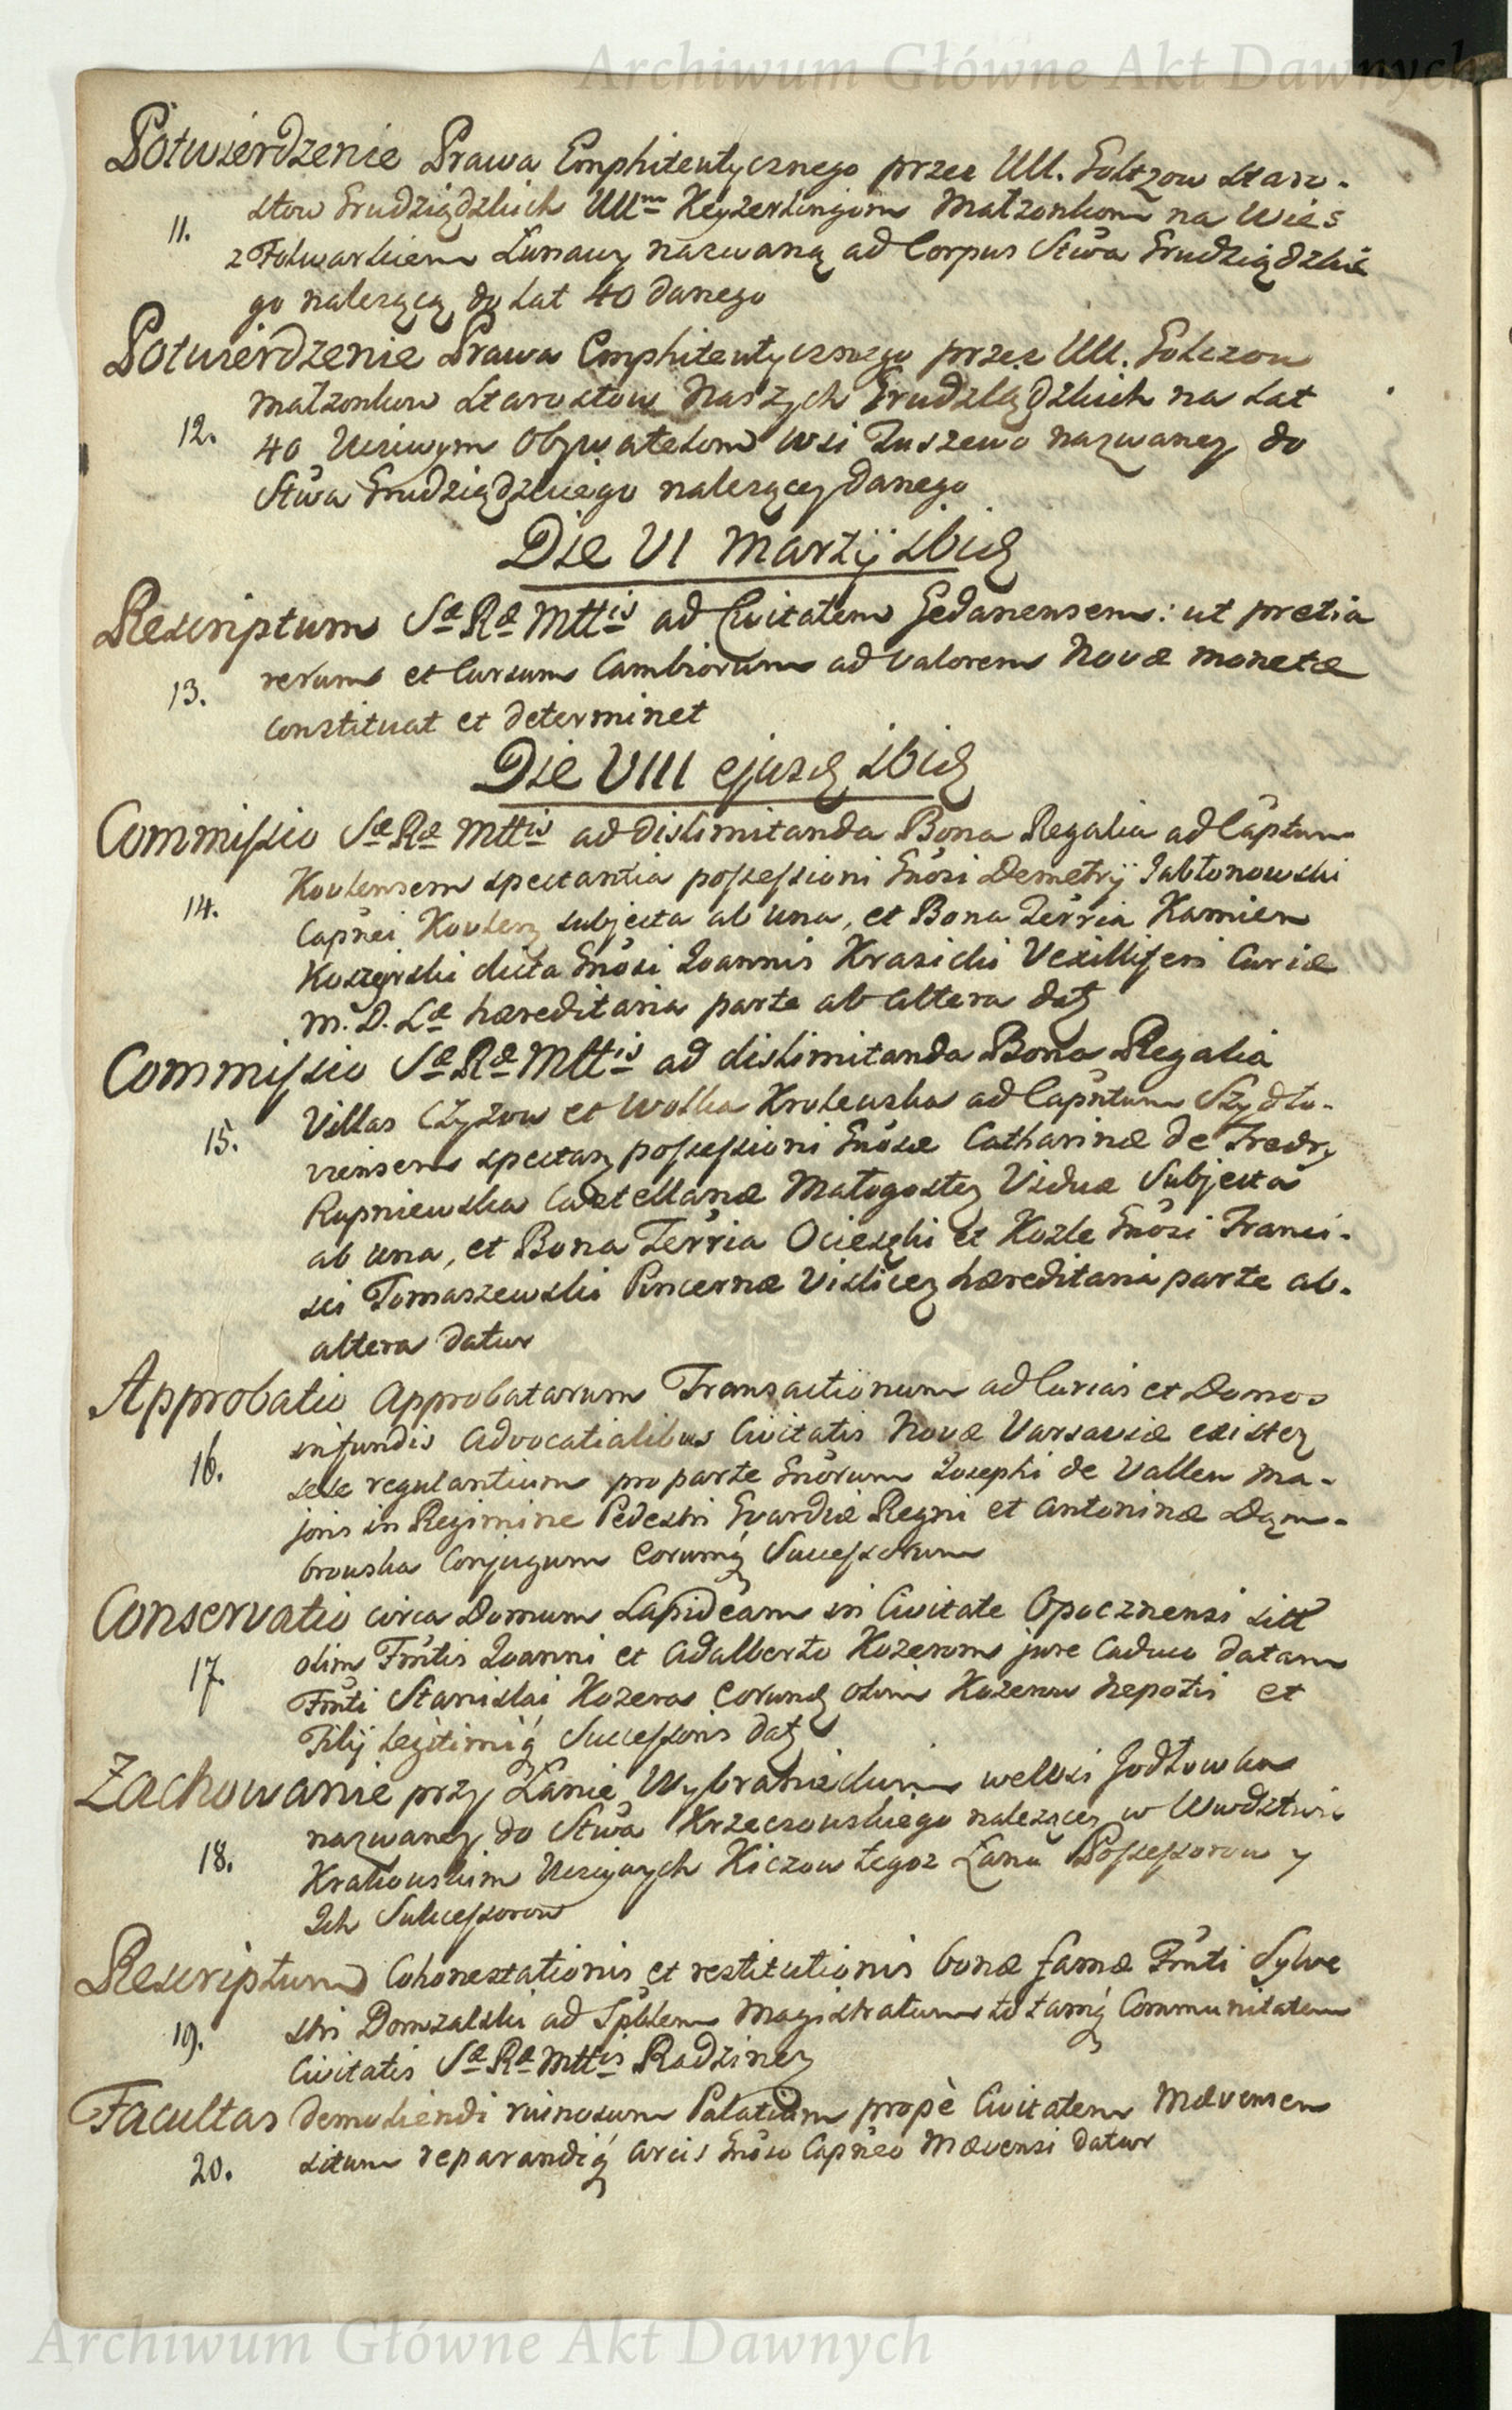 Archiwum Główne Akt Dawnych
Potwierdzenie Prawa Emphiteutycznego przez UU. Goltzow Staro-
stow Grudziądzkich UUm Keyzerlingom Małzonkom na Wies
11.
z Folwarkiem Lunawy nazwaną ad Corpus Stwa Grudziądzkie
go nalezącą do Lat 40 danego
Potwierdzenie Prawa Emphiteutycznego przez UU. Golczow
Małzonkow Starostow Naszych Grudziądzkich na Lat
12.
40 Uczciwym Obywatelom wsi Tuszewo nazwaney do
Stwa Grudziądzkiego nalezącey danego
Die VI Martij ibid
Rescriptum Sæ Ræ Mttis ad Civitatem Gedanensem: ut pretia
rerum et Cursum Cambiorum ad valorem Novæ monetæ
13.
constituat et determinet
Die VIII ejusd ibid
Commissio Sæ Ræ Mttis ad dislimitanda Bona Regalia ad Captum
Kovlensem spectantia possessioni Gnosi Demetrij Jabłonowski
14.
Capnei Kovlen subjecta ab una, et Bona Terria Kamien
Koszyrski dicta Gnosi Joannis Krasicki Vexilliferi Curiæ
M. D. Læ hæreditaria parte ab altera dat
Commissio Sæ Ræ Mttis ad dislimitanda Bona Regalia
Villas Czyzow et Wolka Krolewska ad Capntum Szydło-
15.
viensem spectan possessioni Gnosæ Catharinæ de Fredry
Rupniewska Castellanæ Małogosten Viduæ Subjecta
ab una, et Bona Terria Ocieszki et Kozle Gnosi Franci-
sci Tomaszewski Pincernæ Vislicen hæreditaria parte ab
altera datur
Approbatio Approbatarum Transactionum ad Curias et Domos
in fundis advocatialibus Civitatis Novæ Varsaviæ existen
16.
sese regulantium pro parte Gnorum Josephi de Vallen Ma-
joris in Regimine Pedestri Gvardiæ Regni et Antoninæ Dąm-
browska Conjugum Eorumq Successorum
Conservatio circa Domum Lapideam in Civitate Opocznensi sitt
olim Fmtis Joanni et Adalberto Kozerom jure Caduco datam
17.
Fmti Stanislai Kozera Eorund olim Kozerow Nepotis et
Filij Legitimiq Successoris dat
Zachowanie przy Łanie Wybranieckim we Wsi Jodłowka
nazwaney do Stwa Krzeczowskiego nalezącey w Wwdztwie
18.
Krakowskim Uczciwych Kiczow tegoz Łanu Possessorow y
Ich Sukcessorow
Rescriptum Cohonestationis et restitutionis bonæ famæ Fmti Sylve
stri Domzalski ad Spblem Magistratum totamq Communitatem
19.
Civitatis Sæ Ræ Mttis Radzinen
Facultas demoliendi ruinosum Palatium propè Civitatem Mævensem
situm reparandiq arcis Gnoso Capneo Mævensi datur
20.
Archiwum Główne Akt Dawnych